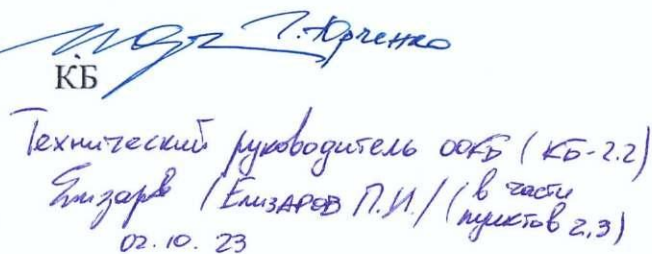 Г. Юрченко
КБ
Технический руководитель ООКБ (КБ-2.2)
Елизаров /Елизаров П.И./ (в части
пунктов 2,3)
02.10.23